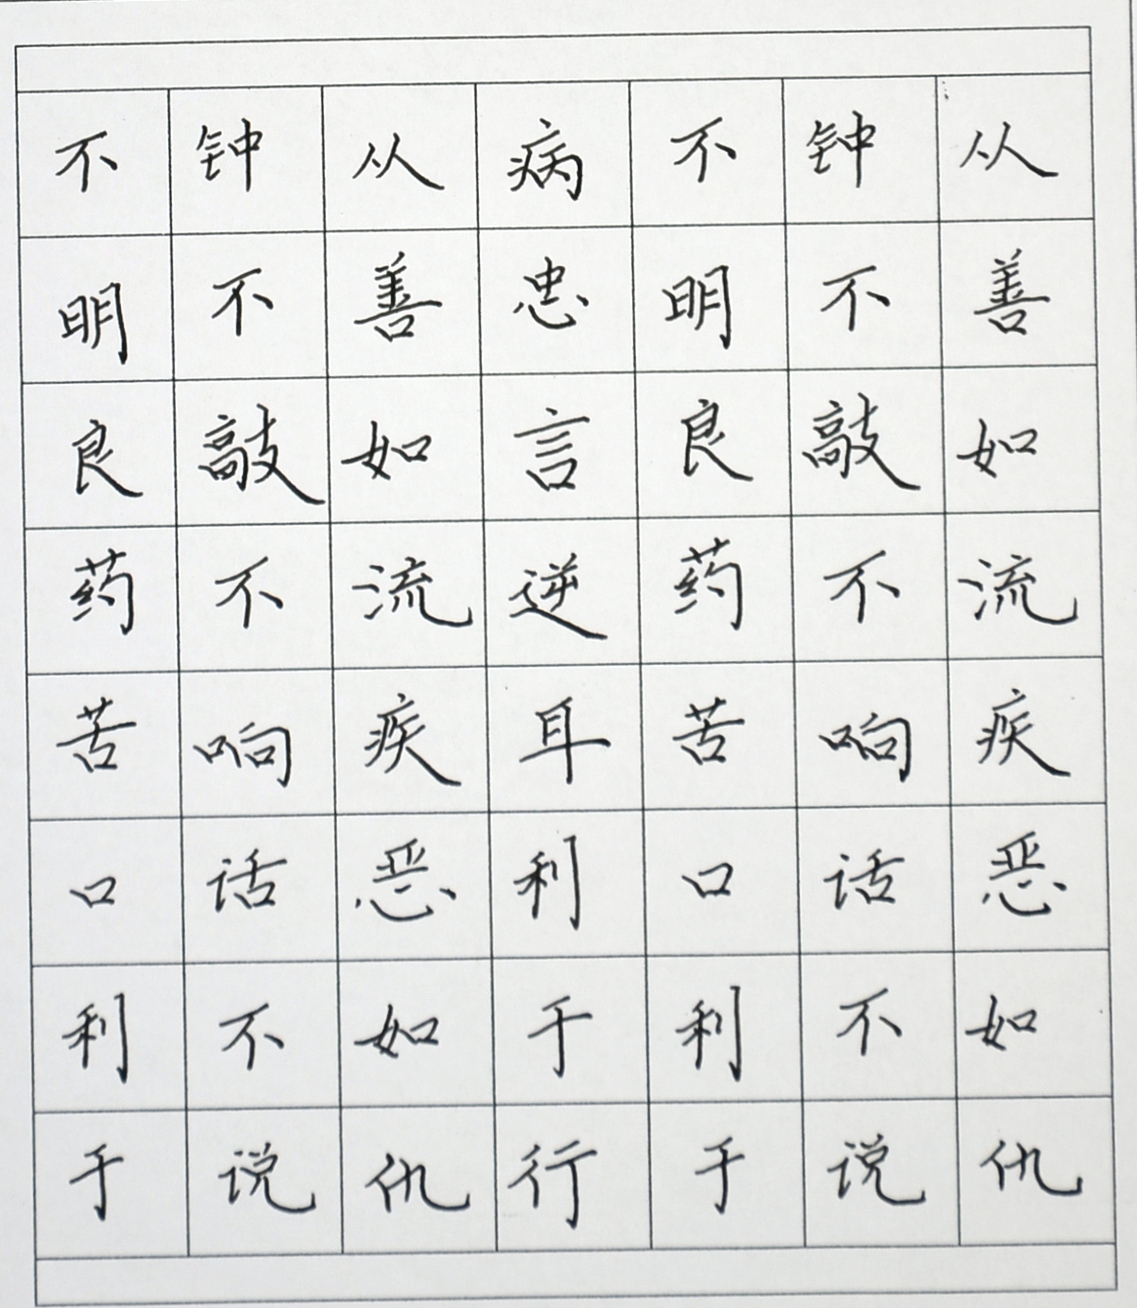 从善如流疾恶如仇
钟不敲不响话不说
不明良药苦口利于
病忠言逆耳利于行
从善如流疾恶如仇
钟不敲不响话不说
不明良药苦口利于